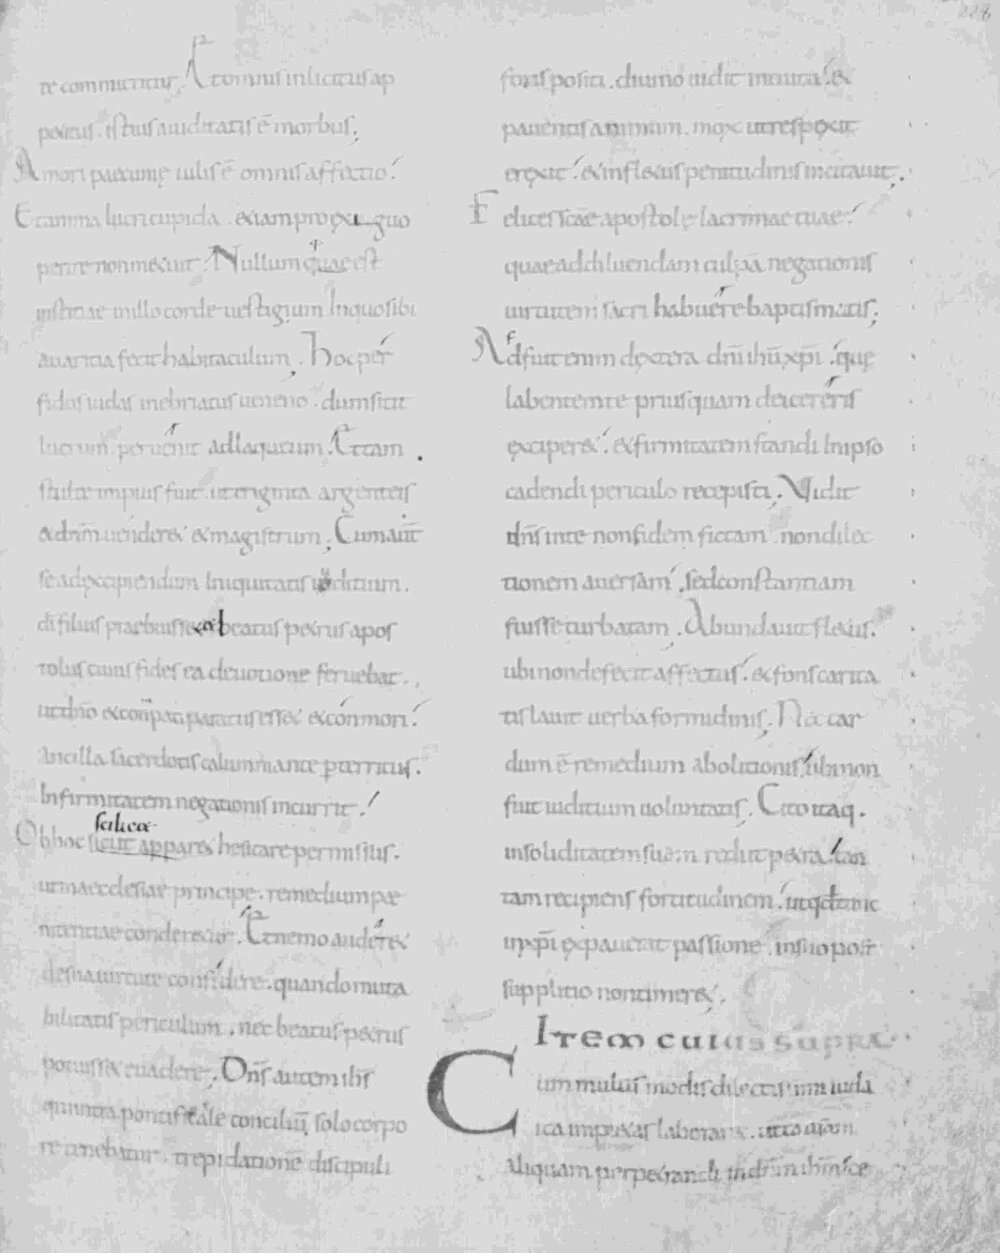 re committitur. Et omnis inlicitus ap
petitus. istius auiditatis ē morbus;
Amori pecunię uilis ē omnis affectio.
Et anima lucri cupida. etiam pro exiguo
perire non metuit. Nullum quae est
iustitiae in illo corde uestigium In quo sibi
auaritia fecit habitaculum. Hoc per
fidus iudas inebriatus ueneno. dum sitit
lucrum. peruenit ad laqueum. Et tam
stulte impius fuit. ut triginta argenteis
& dn̄m uenderet & magistrum; Cum aut̄
se ad excipiendum Iniquitatis iuditium.
di filius praebuisset beatus petrus apos
tolus cuius fides ea deuotione feruebat.
ut dn̄o et conpati paratus esset et conmori.
Ancilla sacerdotis calumniante perterritus.
Infirmitatem negationis incurrit.
scilicet
Ob hoc sicut apparet hesitare permissus.
ut in aecclesiae principe. remedium pae
nitentiae conderetur. Et nemo auderet
de sua uirtute confidere. quando muta
bilitatis periculum. nec beatus petrus
potuisset euadere. Dn̄s autem ih̄s
qui intra pontificale conciliū solo corpo
re tenebatur. trepidationē discipuli
foris positi. diuino uidit intuitu. et
pauentis animum. mox ut respexit
erexit. et in fletus penitudinis incitauit.
Felices sc̄ae apostolę lacrimae tuae.
quae ad diluendam culpā negationis
uirtutem sacri habuere baptismatis;
Adfuit enim dextera dn̄i ih̄u xp̄i. quę
labentem te priusquam deicereris
exciperet. et firmitatem standi In ipso
cadendi periculo recepisti. Vidit
dn̄s in te non fidem fictam non dilec
tionem auersam. sed constantiam
fuisse turbatam. Abundauit fletus.
ubi non defecit affectus. et fons carita
tis lauit uerba formidinis. Nec tar
dum ē remedium abolitionis. ubi non
fuit iuditium uoluntatis. Cito itaq.
in soliditatem suam rediit petra. tan
tam recipiens fortitudinem. ut qd tunc
in xp̄i expauerat passione. in suo post
supplitio non timeret.
Item cuius supra
Cum multis modis dilectissimi iuda
ica impietas laboraret.
aliquam perpetrandi in dn̄m ih̄m